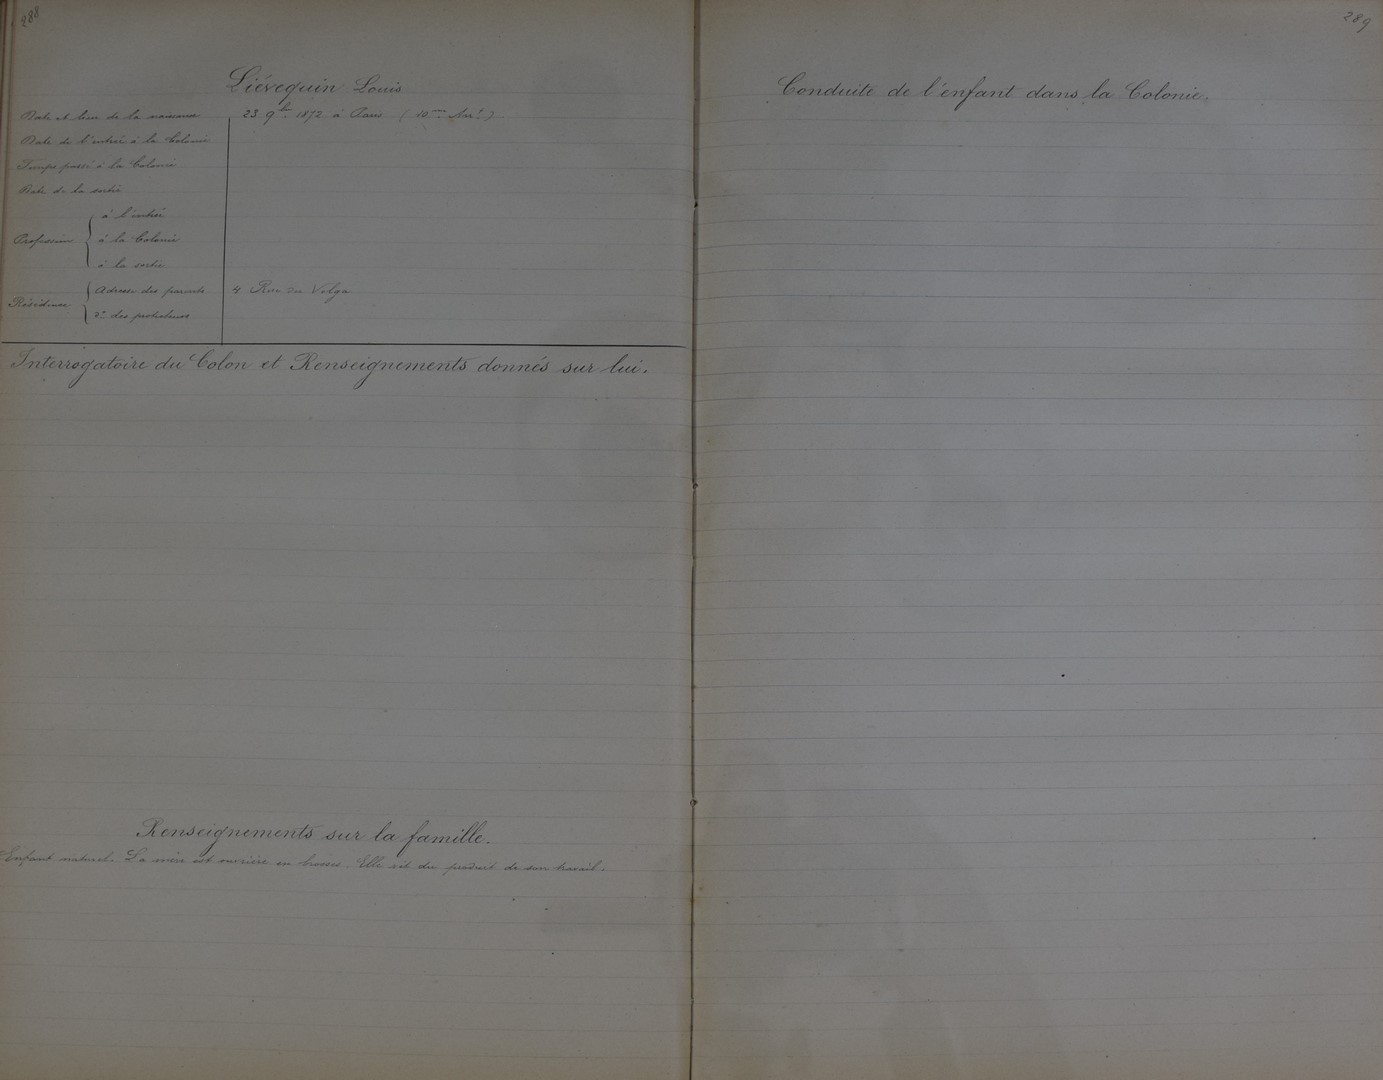 288
Liévequin Louis
Date et lieu de la naissance 23 9bre 1872 à Paris (10me Arrt).
Date de l'entrée à la Colonie
Temps passé à la Colonie
Date de la sortie
à l'entrée
Profession à la Colonie
à la sortie
Adresse des parents 4 Rue du Volga
Résidence
do des protecteurs
Interrogatoire du Colon et Renseignements donnés sur lui.
Renseignements sur la famille.
Enfant naturel. La mère est ouvrière en brosses. Elle vit du produit de son travail.
289
Conduite de l'enfant dans la Colonie.